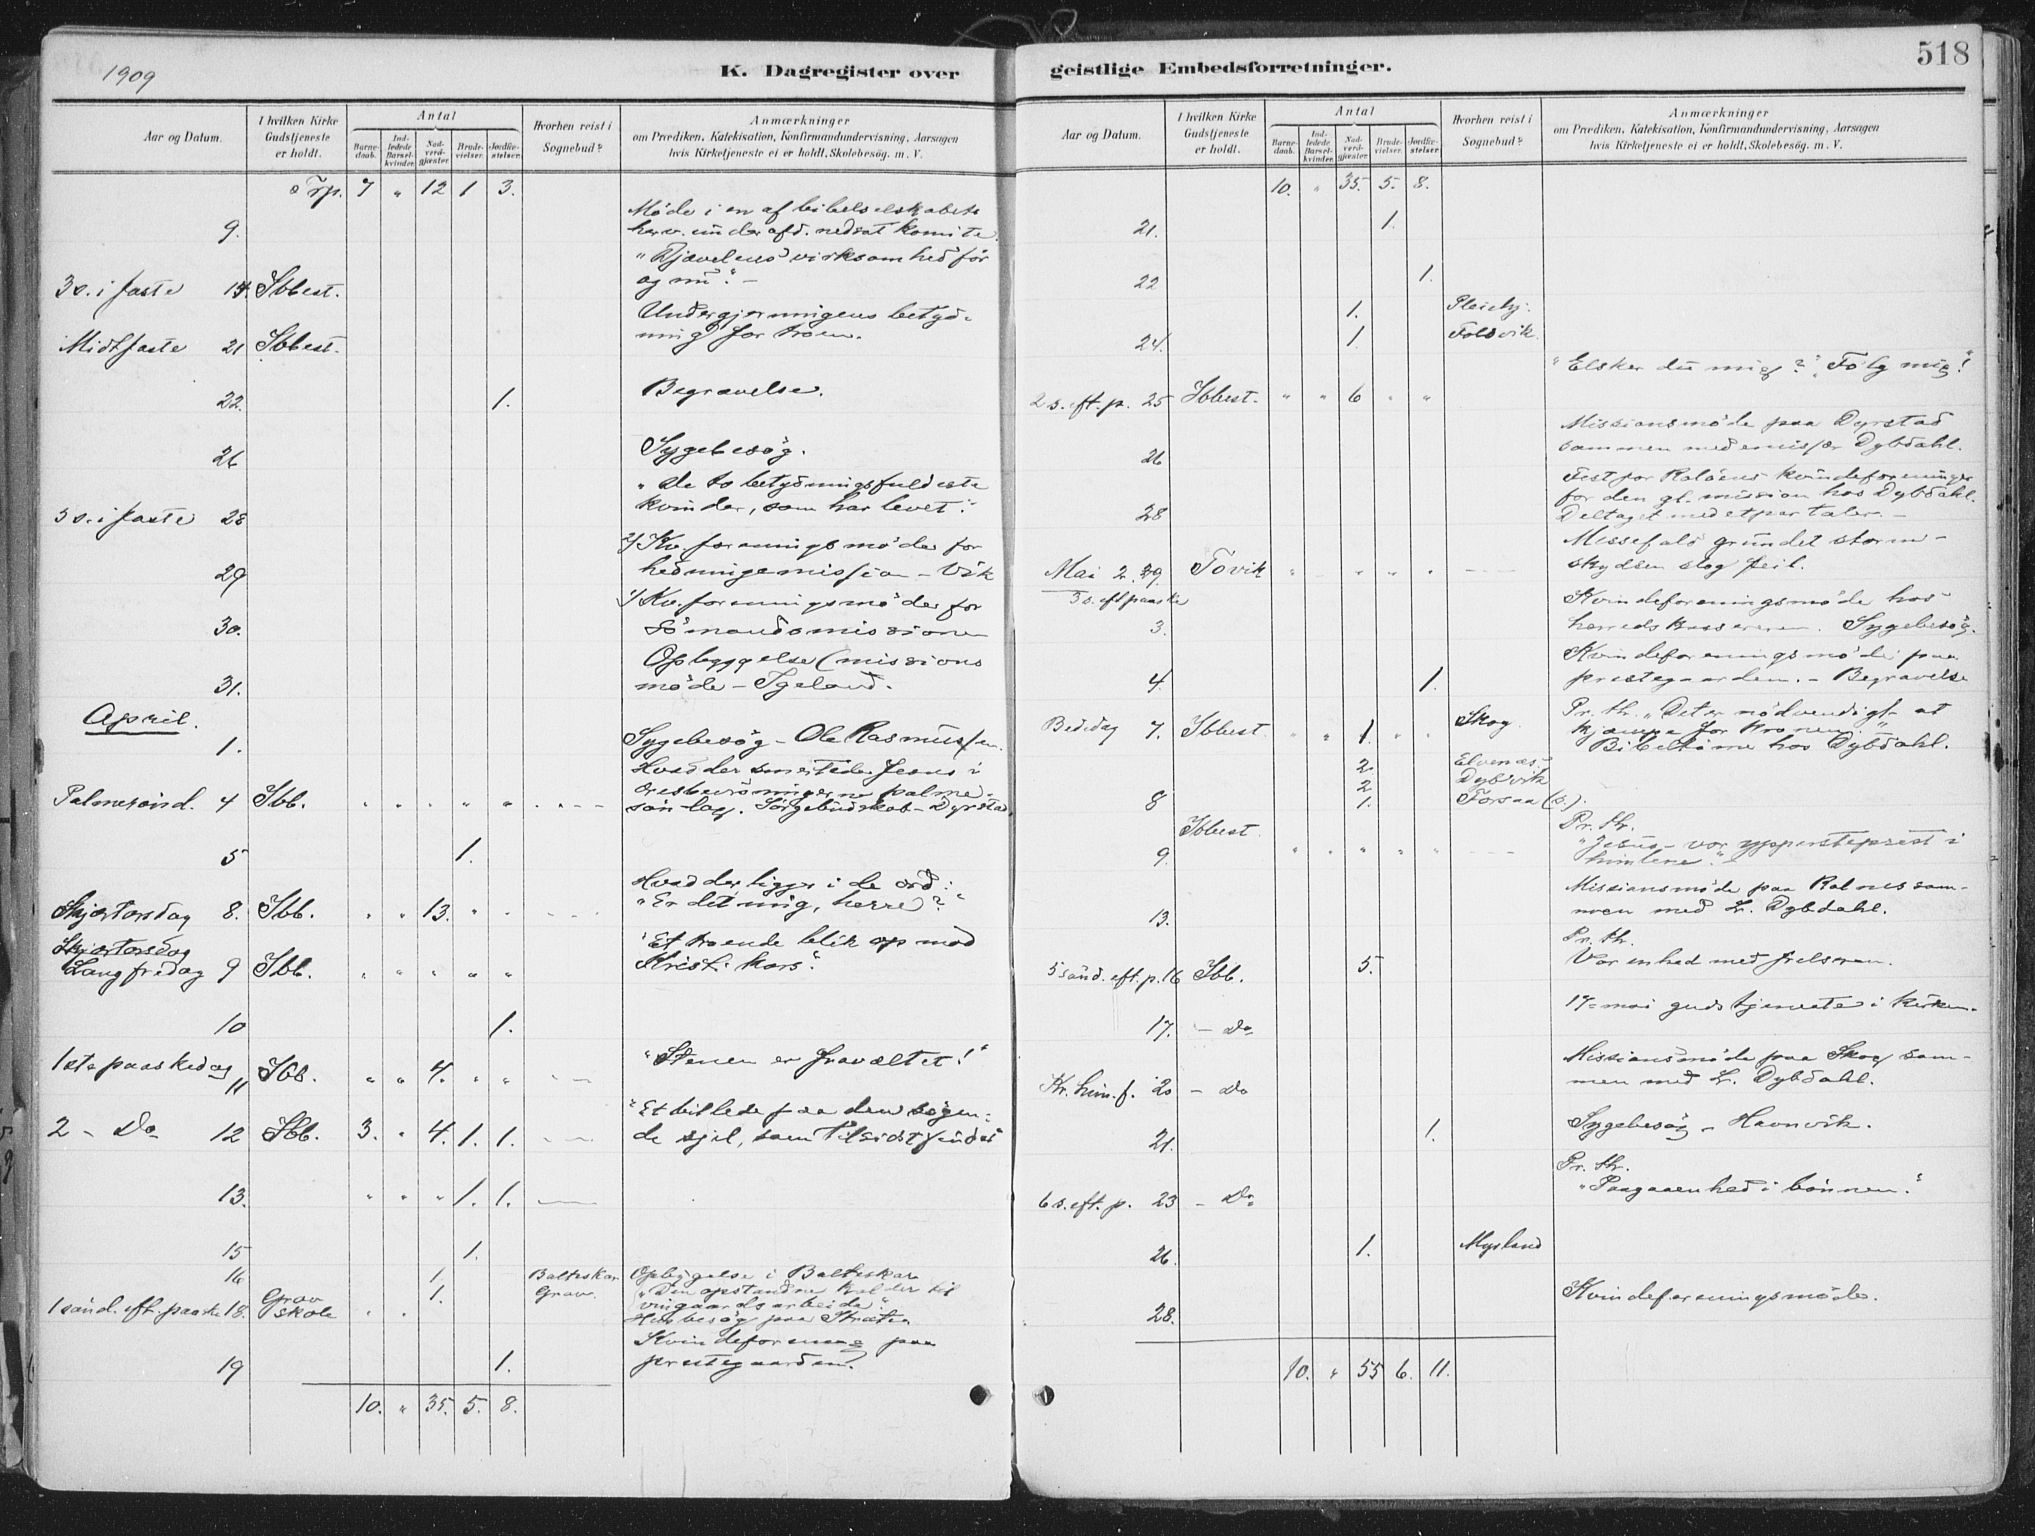 1909
K. Dagregister over
Aar og Datum.
I hvilken Kirke Gudstjeneste er holdt.
Antal
Barnedaab.
Indledede Barselkvinder.
Nadverdgjæster.
Brudevielser.
Jordfæstelser.
Hvorhen reist i Sognebud?
Anmærkninger
om Prædiken, Katekisation, Konfirmandundervisning, Aarsagen
hvis Kirketjeneste ei er holdt, Skolebesøg. m. V.
Trp. 7 " 12 1 3.
Møde i en af bibelselskabets
9. herv. under afd. nedsat komite.
"Djævelens virksomhed før
3 s. i faste 14. Ibbest. og nu". –
Undergjerningens betyd-
Midtfaste 21 Ibbest. ning for troen.
22. 1. Begravelse.
26 Sygebesøg.
"De to betydningsfuldeste
5 s. i faste 28 kvinder, som har levet".
Kv.foreningsmøder for
29 hedningemission – Vik
Kv.foreningsmøder for
30. Sømandsmissionen
Opbyggelse (missions
31. møde – Igeland.
April.
1. Sygebesøg – Ole Rasmussen.
Hvad der smertede Jesus i
æresbevisningerne palme-
Palmesønd. 4 Ibb. " " " " " søndag. Sørgebudskab – Dyrstad
5 1.
Hvad der ligger i de ord:
Skjærtorsdag 8. Ibb. " " 13. " " "Er det mig, herre?"
Skjærtorsdag
"Et troende blik op mod
Langfredag 9 Ibb. " " " " " Kristi kors".
10 1.
1ste paaskedag 11 Ibb. " " 4. " " "Stenen er fravæltet!"
"Et billede paa den søgen-
2 – Do 12 Ibb. 3. " 4. 1. 1. de sjel, som tilsidst finder
13. " " " 1. 1.
15 1.
16 1. Balteskar Opbygelse i Balteskar
1 sønd. eft. paaske 18. Grav skole " " 1. Grav. "Den opstandne kalder til
vingaardsarbeide".
Husbesøg paa Straten
Kvindeforening paa
19 1. prestegaarden.
10. " 35. 5. 8.
geistlige Embedsforretninger.
518
Aar og Datum.
I hvilken Kirke Gudstjeneste er holdt.
Antal
Barnedaab.
Indledede Barselkvinder.
Nadverdgjæster.
Brudevielser.
Jordfæstelser.
Hvorhen reist i Sognebud?
Anmærkninger
om Prædiken, Katekisation, Konfirmandundervisning, Aarsagen
hvis Kirketjeneste ei er holdt, Skolebesøg. m. V.
10. " 35. 5. 8.
21. 1.
22 1.
1.
24. 1. Foldvik
"Elsker du mig?" "Følg mig!"
2 s. eft. p. 25 Ibbest. " " 6 " "
Missionsmøde paa Dyrstad
26 sammen med emissær Dybdahl.
Fest for Rolløens kvindeforeninger
for den gl. mission hos Dybdahl.
28 Deltaget med et par taler. –
Messefald grundet storm –
Mai 2. Tovik " " " " skydsen slog feil.
3 s. eft paaske
Kvindeforeningsmøde hos
3. herredskassereren. Sygebesøg.
Kvindeforeningsmøde paa
4. 1. prestegaarden. – Begravelse
Bededag 7. Ibbest. " " 1. " " Skog. Pr. th. "Det er nødvendigt at
kjæmpe for kronen."
Bibeltime hos Dybdahl.
2. Elvenæs
2 Dybvik
8 1. Forsaa (s.).
Pr. th.
9. Ibbest. " " " " " "Jesus – vor ypperstepræst i
himlene."
Missionsmøde paa Rolnes sam-
13. men med L. Dybdahl.
Pr. th.
5 sønd. eft. p. 16 Ibb. 5. Vor enhed med frelseren.
17. – Do 17-mai gudstjeneste i kirken.
Missionsmøde paa Skog sam-
Kr. him. f. 20 – Do men med L. Dybdahl.
21. 1. Sygebesøg – Havnvik.
Pr. th.
6 s. eft. p. 23 – Do "Paagaaenhed i bønnen."
26. 1. Mysland
28. Kvindeforeningsmøde.
10. " 55 6. 11.